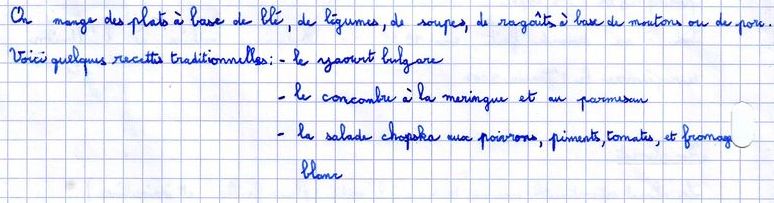 On mange des plats à base de blé, de légumes, de soupes, de ragoûts à base de moutons ou de porc.
Voici quelques recettes traditionnelles : - le yaourt bulgare
- le concombre à la meringue et au parmesan
- la salade chopska aux poivrons, piments, tomates, et fromage
blanc